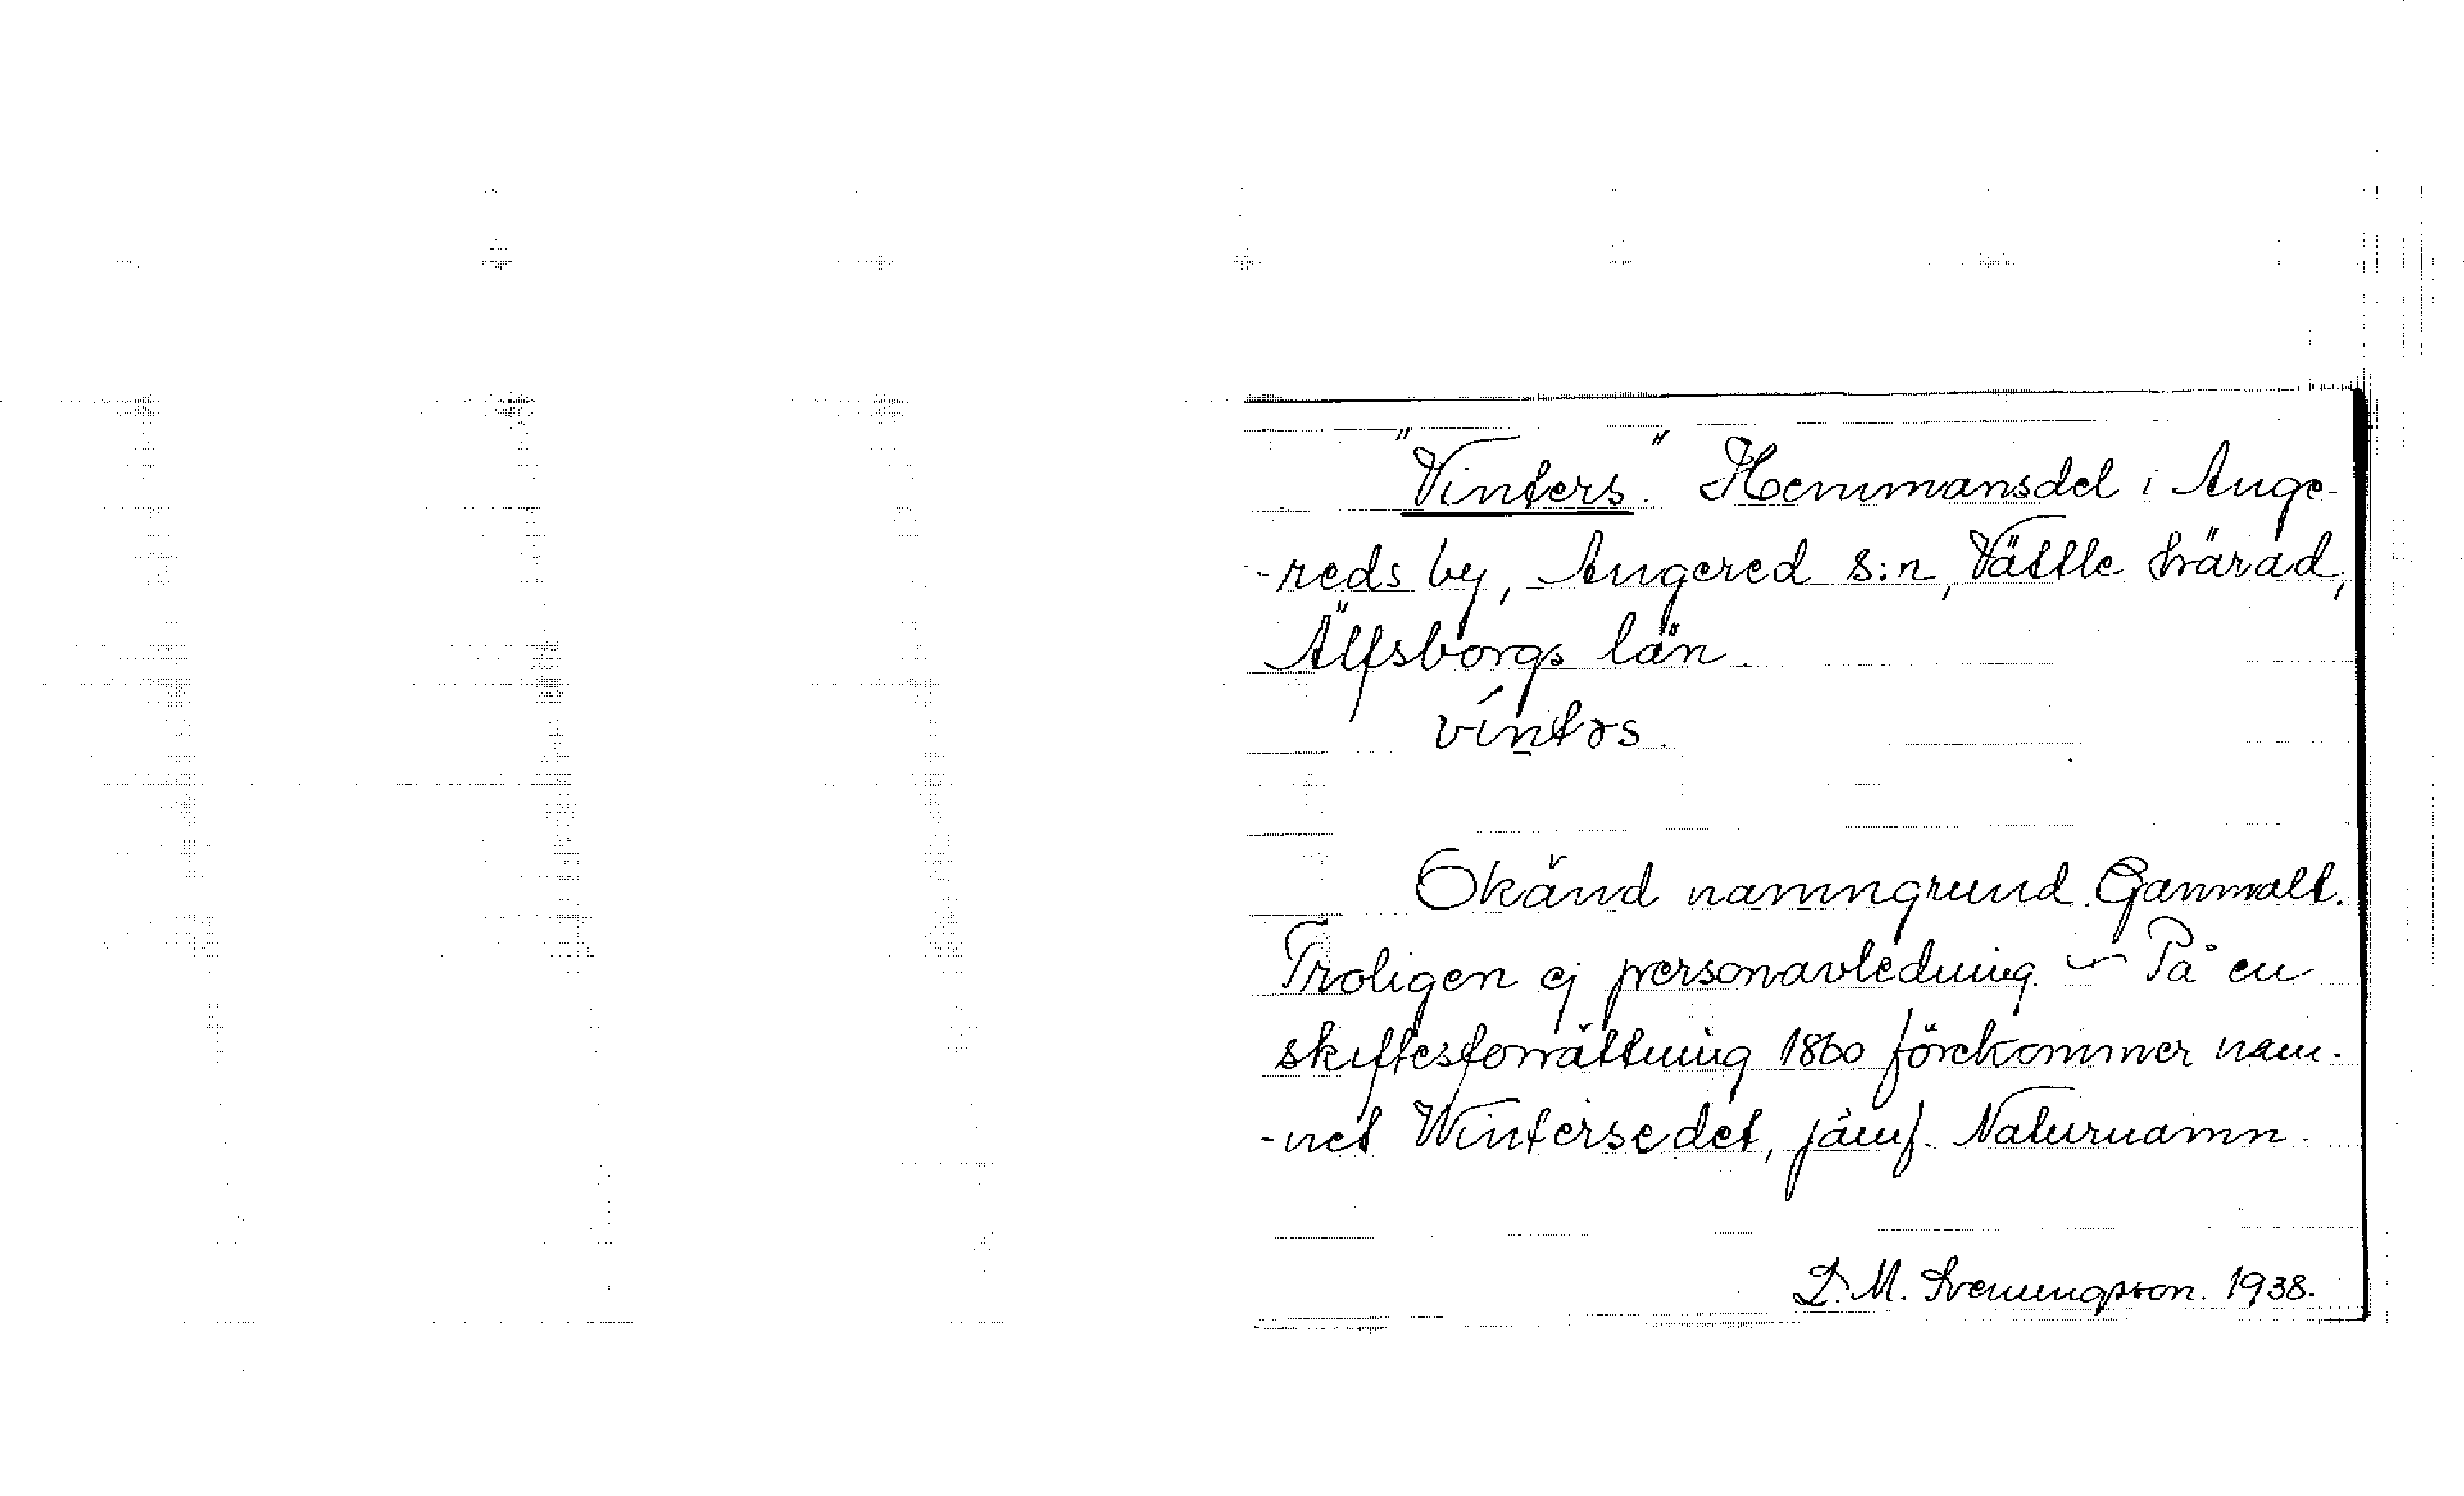 "Vinters." Hemmansdel i Ange-
-reds by, Angered s:n, Vättle härad,
Älfsborgs län.
víntɘs.
Okänd namngrund. Gammalt.
Troligen ej personavledning. – På en
skiftesförrättning 1860 förekommer nam-
-net Wintersedet, jämf. Naturnamn.
D. M. Svenungsson. 1938.